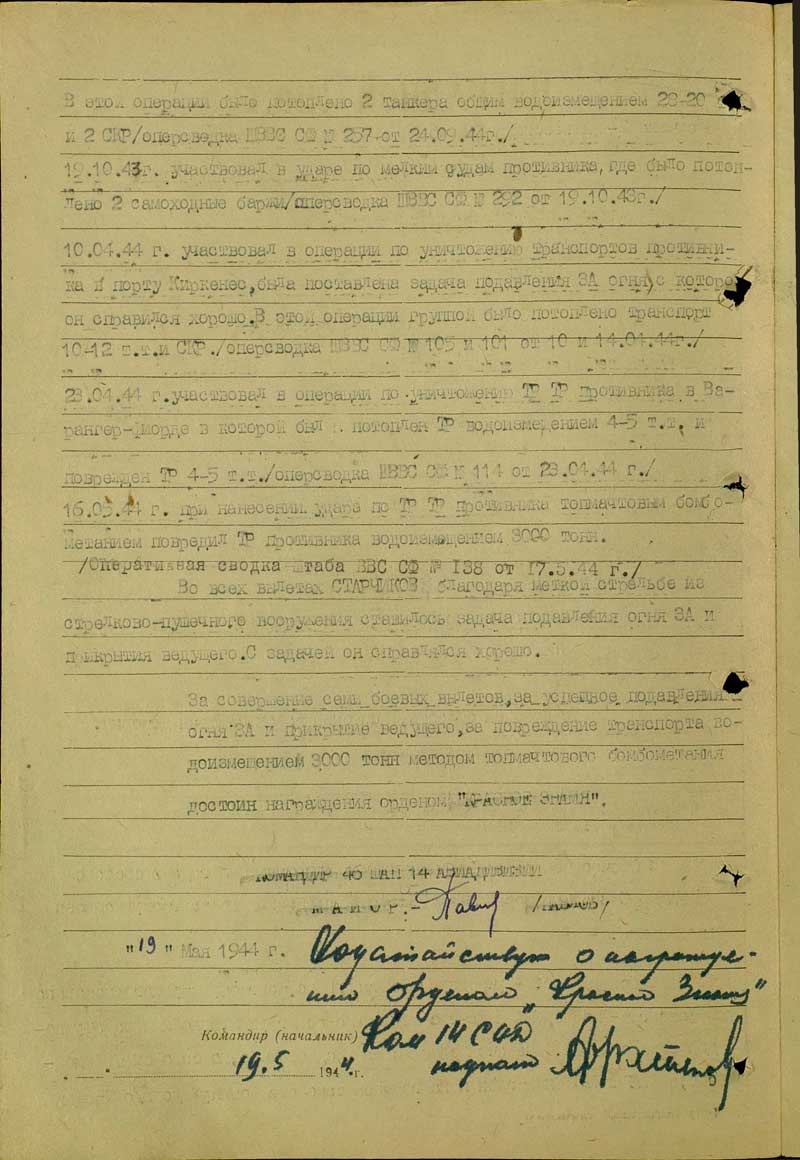 В этой операции было потоплено 2 танкера общим водоизмещением 23-20
и 2 СКР/оперсводка ШВВС СФ № 257 от 24.09.44г./
19.10.43г. участвовал в ударе по мелким судам противника, где было потоп-
лено 2 самоходные баржи/оперсводка ШВВС СФ № 292 от 19.10.43г./
10.04.44 г. участвовал в операции по уничтожению транспортов противни-
ка в порту Киркенес, была поставлена задача подавления ЗА огня, с которой
он справился хорошо. В этой операции группой было потоплено транспорт
10-12 т.т. и СКР./оперсводка ШВВС СФ № 105 и 101 от 10 и 14.04.44г./
23.04.44 г. участвовал в операции по уничтожению ТР ТР противника в Ва-
рангер-фиорде в которой был потоплен ТР водоизмещением 4-5 т.т. и
поврежден ТР 4-5 т.т./оперсводка ШВВС СФ № 114 от 23.04.44 г./
16.05.44 г. при нанесении удара по ТР ТР противника топмачтовым бомбо-
метанием повредил ТР противника водоизмещением 3000 тонн.
/Оперативная сводка штаба ВВС СФ № 138 от 17.5.44 г./
Во всех вылетах СТАРЧИКОВ благодаря меткой стрельбе из
стрелково-пушечного вооружения ставилось задача подавления огня ЗА и
прикрытия ведущего. С задачей он справлялся хорошо.
За совершение семи боевых вылетов, за успешное подавления
огня ЗА и прикрытие ведущего, за повреждение транспорта во-
доизмещением 3000 тонн методом топмачтового бомбометания
достоин награждения орденом "КРАСНОЕ ЗНАМЯ".
КОМАНДИР 46 ШАП 14 АВИАДИВИЗИИ
МАЙОР.- /ПАВЛОВ/
"19" Мая 1944 г. Ходатайствую о награжде-
нии орденом „Красное Знамя"
Командир (начальник) Ком 14 САД
19.5 1944.г. подполк